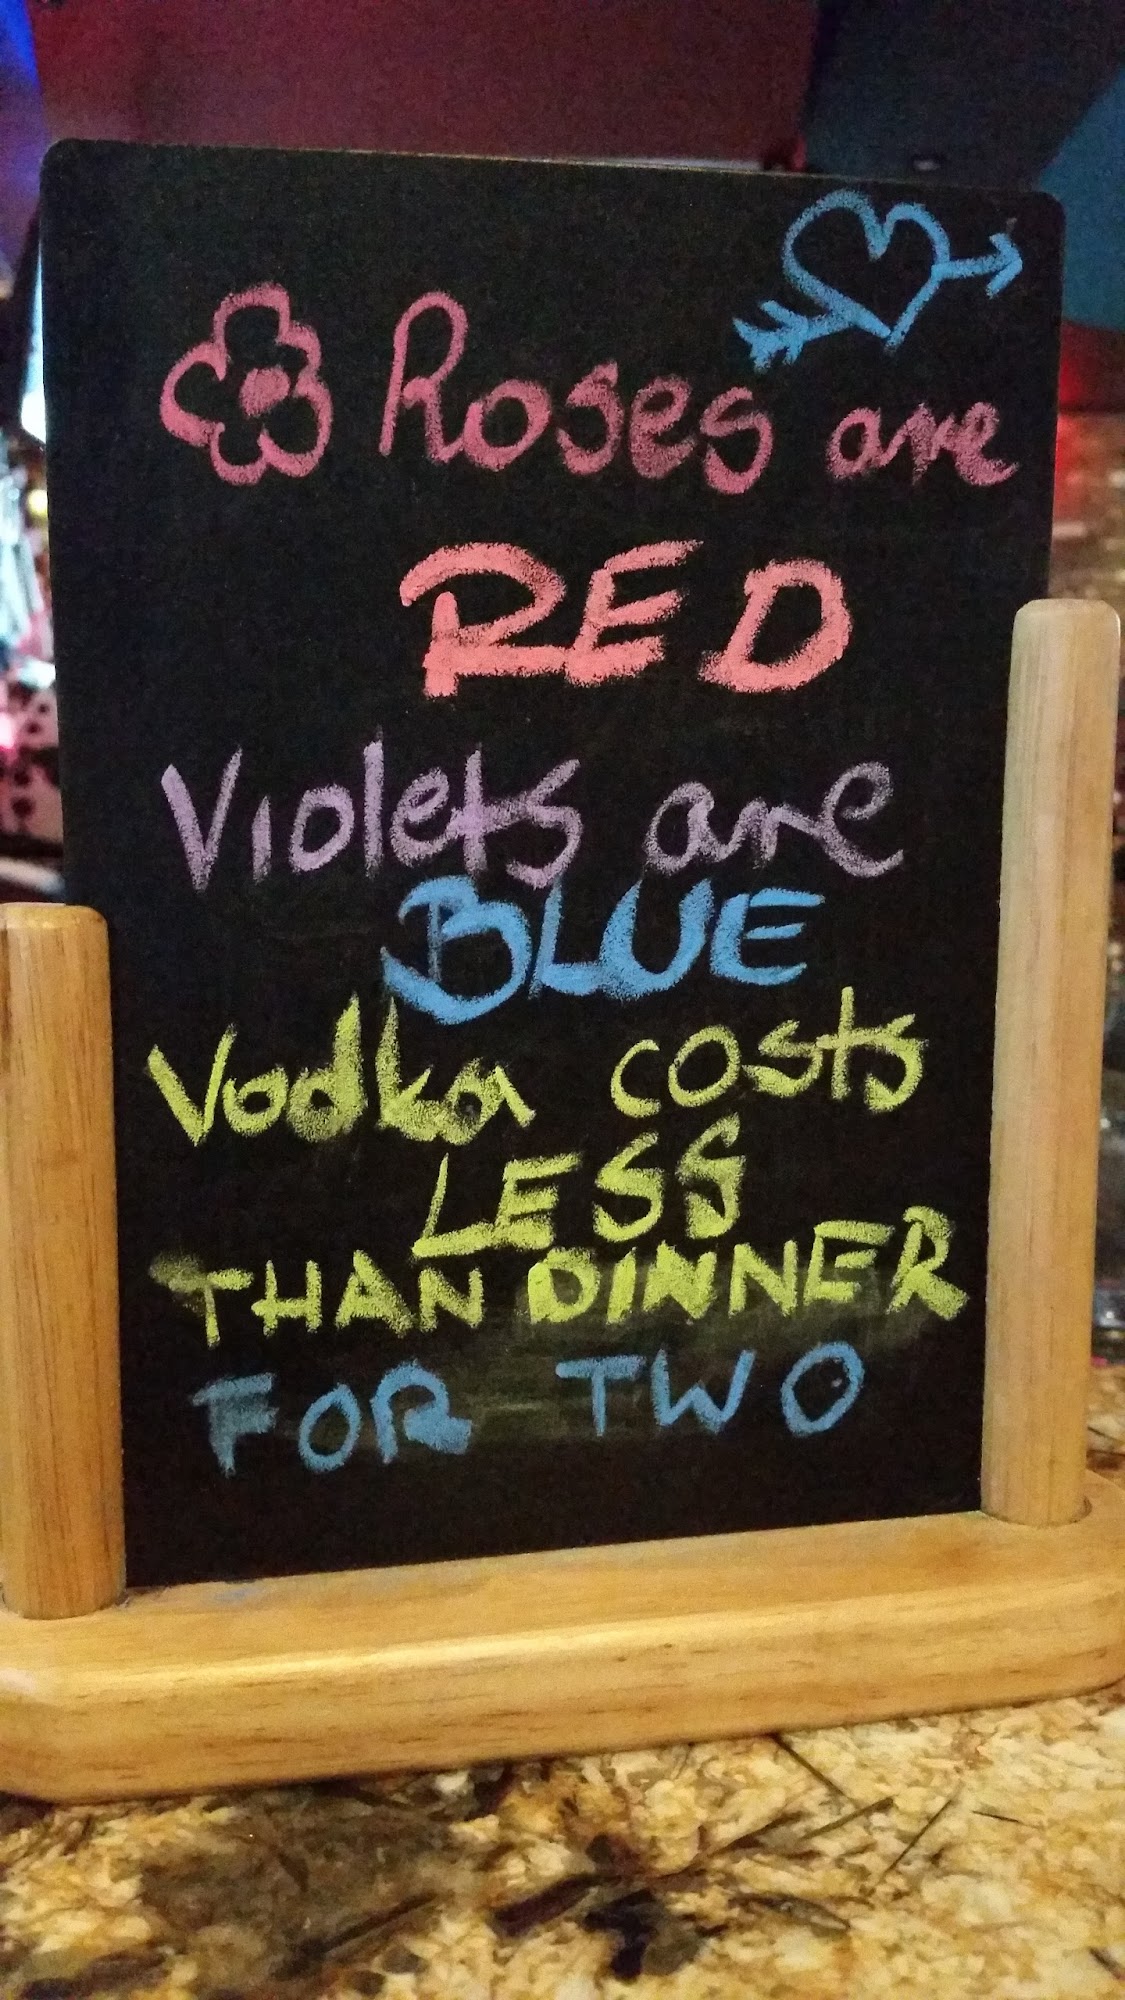 Roses are
RED
Violets are
BLUE
Vodka costs
LESS
THAN DINNER
FOR TWO